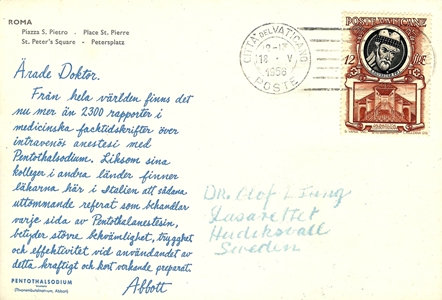 ROMA
Piazza S. Pietro - Place St. Pierre
St. Peter's Square - Petersplatz
Ärade Doktor.
Från hela världen finns det
nu mer än 2300 rapporter i
medicinska facktidskrifter över
intravenös anestesi med
Pentothalsodium. Liksom sina
kolleger i andra länder finner
läkarna här i Italien att sådana
uttömmande referat som behandlar
varje sida av Pentothalanestesin,
betyder större bekvämlighet, trygghet
och effektivitet vid användandet av
detta kraftigt och kort verkande preparat.
Abbott
PENTOTHALSODIUM
(Thiomebumalnatrium, Abbott)
CITTÀ DEL VATICANO
18 · V
1958
POSTE
POSTE VATICANE
12
DR. Olof L. Ljung
Lasarettet
Hudiksvall
Sweden